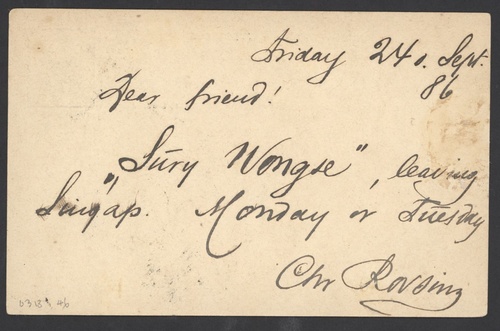 Friday 24 o. Sept.
86
Dear friend!
„Sury Wongse", leaving
Singap. Monday or Tuesday
Chr Rovsing